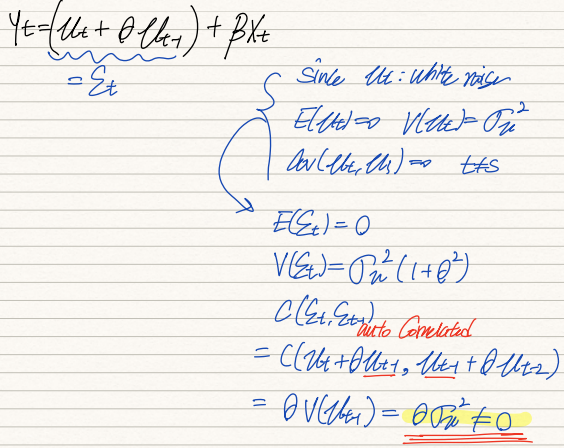 Yt=(ut+θut-1)+βXt
=εt
Since ut: white noise
E(ut)=0 V(ut)=σu²
Cov(ut,us)=0 t≠s
E(εt)=0
V(εt)=σu²(1+θ²)
C(εt,εt-1)
auto Correlated
=C(ut+θut-1, ut-1+θut-2)
=θV(ut-1)=θσu²≠0